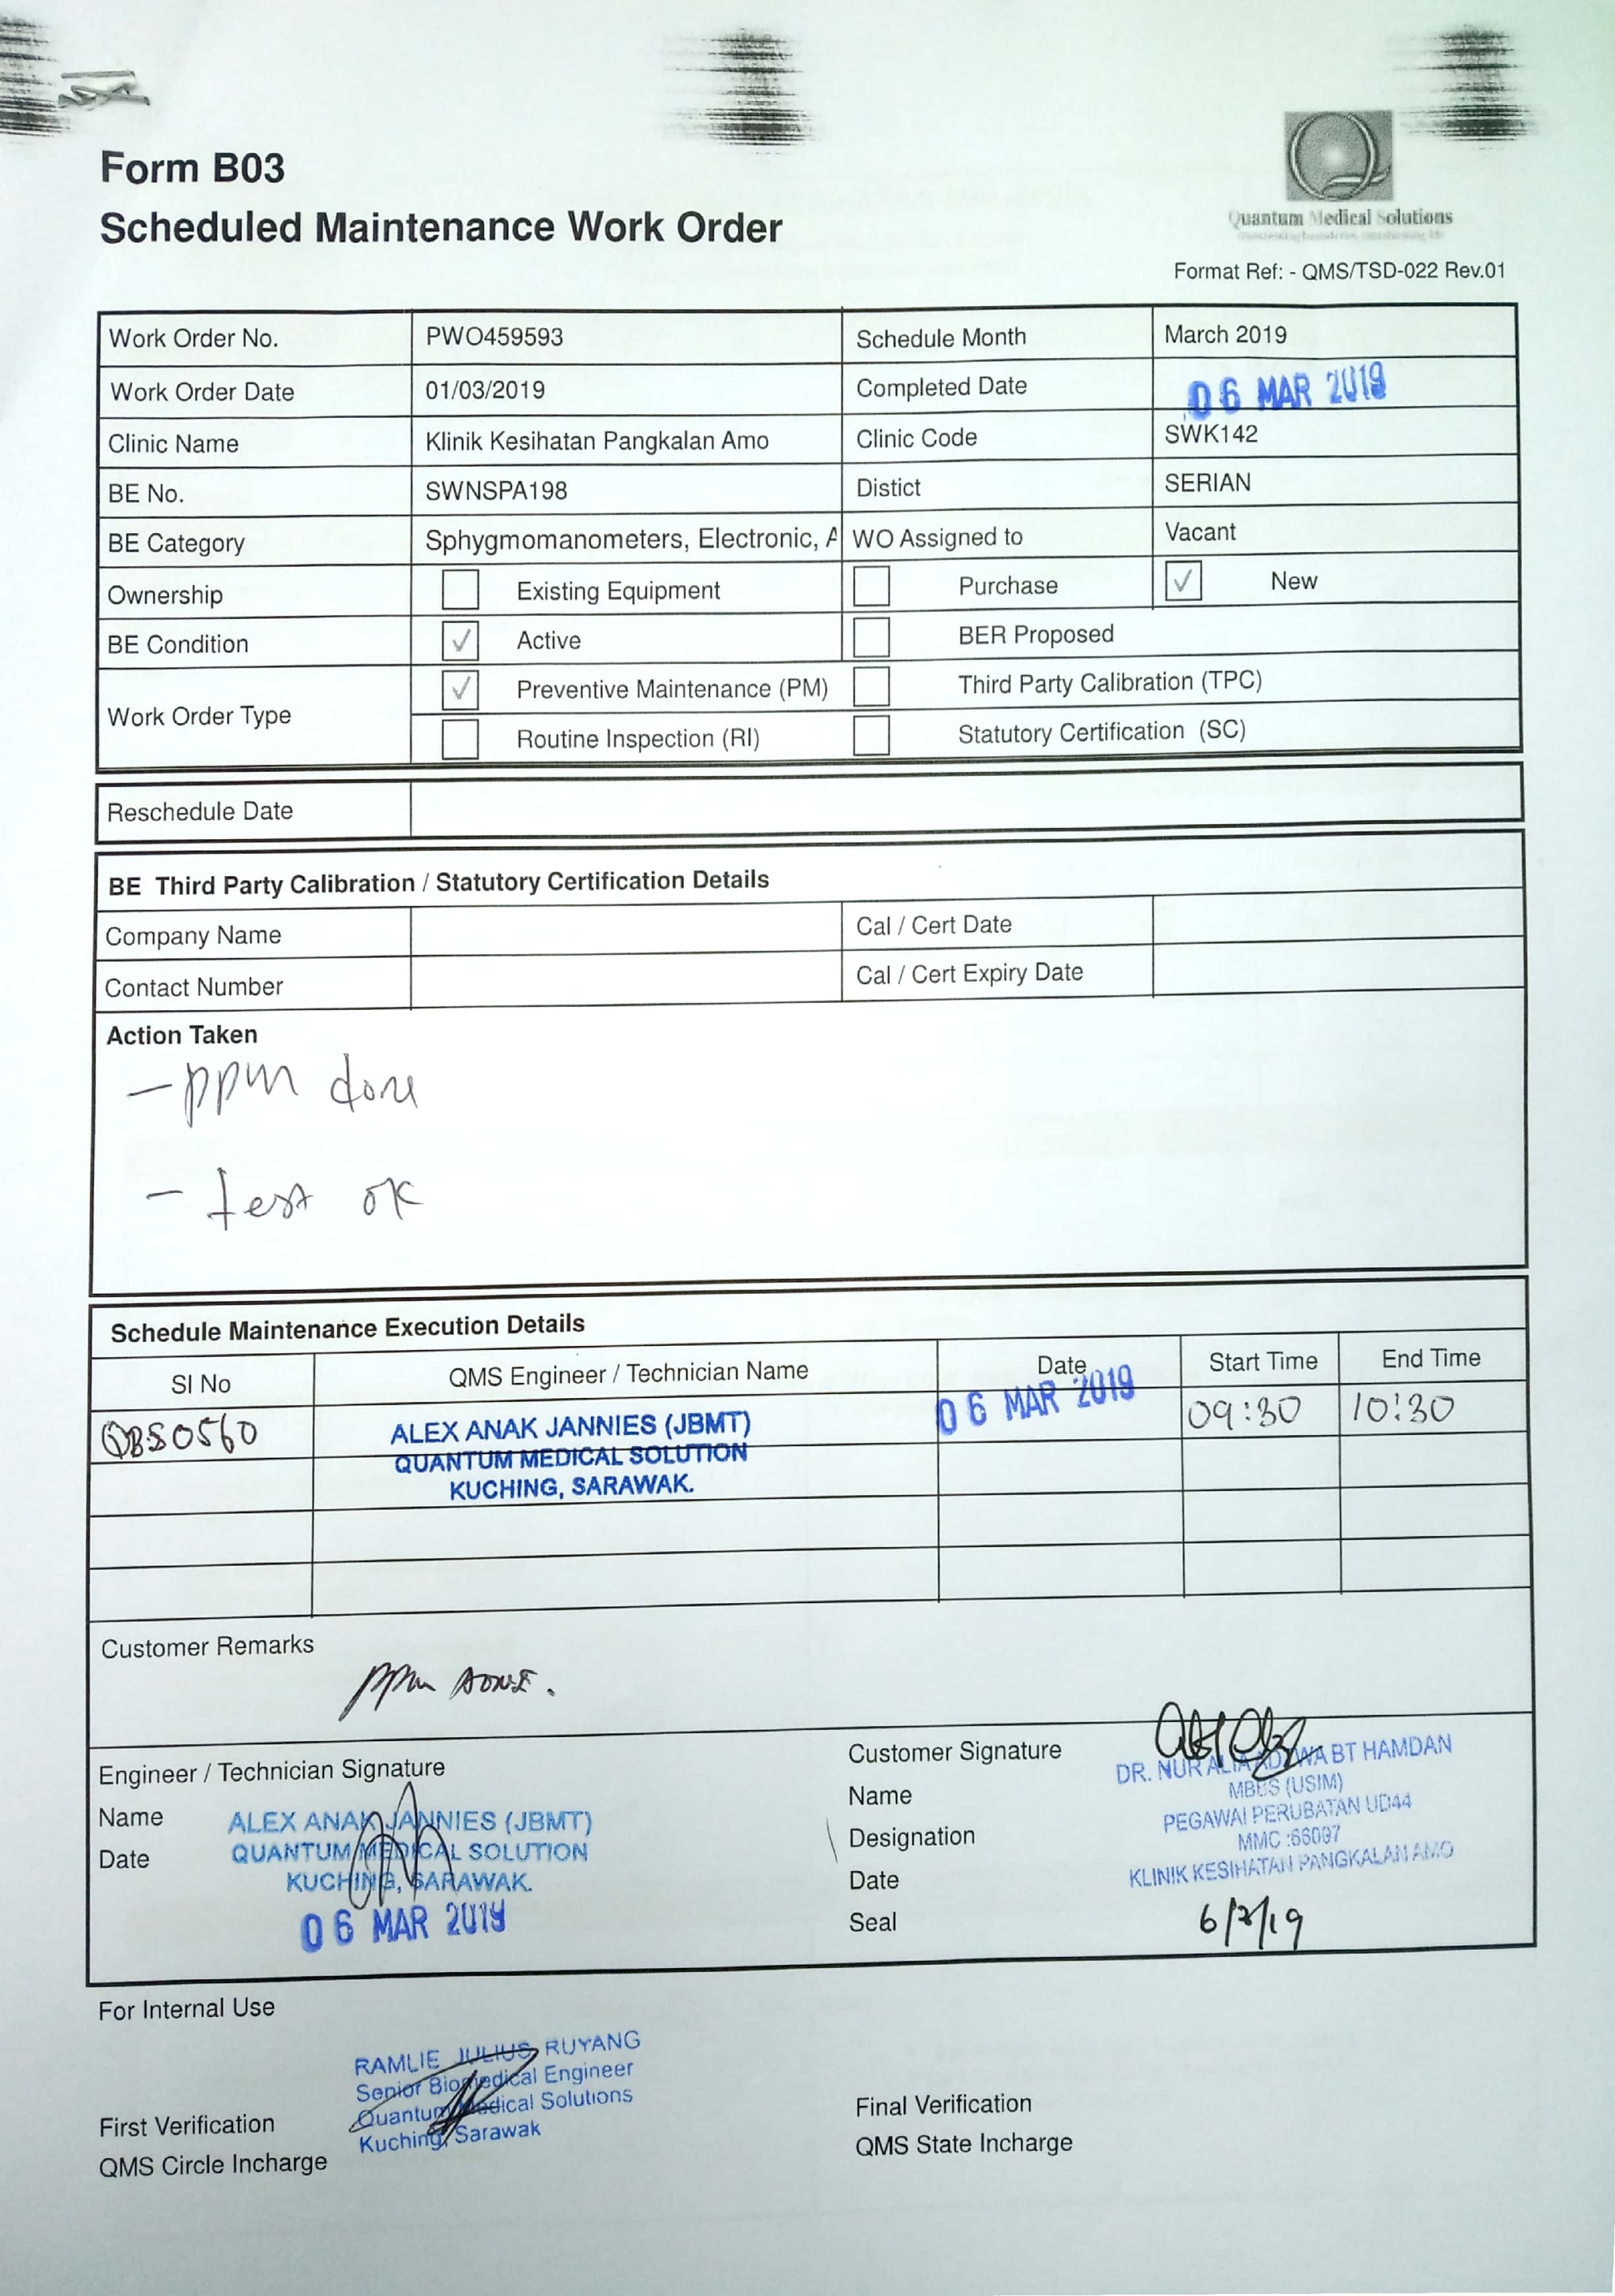 Form B03
Scheduled Maintenance Work Order
Quantum Medical Solutions
Format Ref: - QMS/TSD-022 Rev.01
Work Order No. PWO459593 Schedule Month March 2019
Work Order Date 01/03/2019 Completed Date 06 MAR 2019
Clinic Name Klinik Kesihatan Pangkalan Amo Clinic Code SWK142
BE No. SWNSPA198 Distict SERIAN
BE Category Sphygmomanometers, Electronic, A WO Assigned to Vacant
Ownership Existing Equipment Purchase ✓ New
BE Condition ✓ Active BER Proposed
Work Order Type ✓ Preventive Maintenance (PM) Third Party Calibration (TPC)
Routine Inspection (RI) Statutory Certification (SC)
Reschedule Date
BE Third Party Calibration / Statutory Certification Details
Company Name Cal / Cert Date
Contact Number Cal / Cert Expiry Date
Action Taken
- ppm done
- test ok
Schedule Maintenance Execution Details
SI No QMS Engineer / Technician Name Date Start Time End Time
QBS0560 ALEX ANAK JANNIES (JBMT) 06 MAR 2019 09:30 10:30
QUANTUM MEDICAL SOLUTION
KUCHING, SARAWAK.
Customer Remarks
ppm DONE.
Engineer / Technician Signature
Name ALEX ANAK JANNIES (JBMT)
Date QUANTUM MEDICAL SOLUTION
KUCHING, SARAWAK.
06 MAR 2019
Customer Signature DR. NUR ALIA ADWA BT HAMDAN
Name MBBS (USIM)
PEGAWAI PERUBATAN UD44
Designation MMC :66097
Date KLINIK KESIHATAN PANGKALAN AMO
Seal 6/3/19
For Internal Use
RAMLIE JULIUS RUYANG
Senior Biomedical Engineer
Quantum Medical Solutions
Kuching, Sarawak
First Verification
QMS Circle Incharge
Final Verification
QMS State Incharge